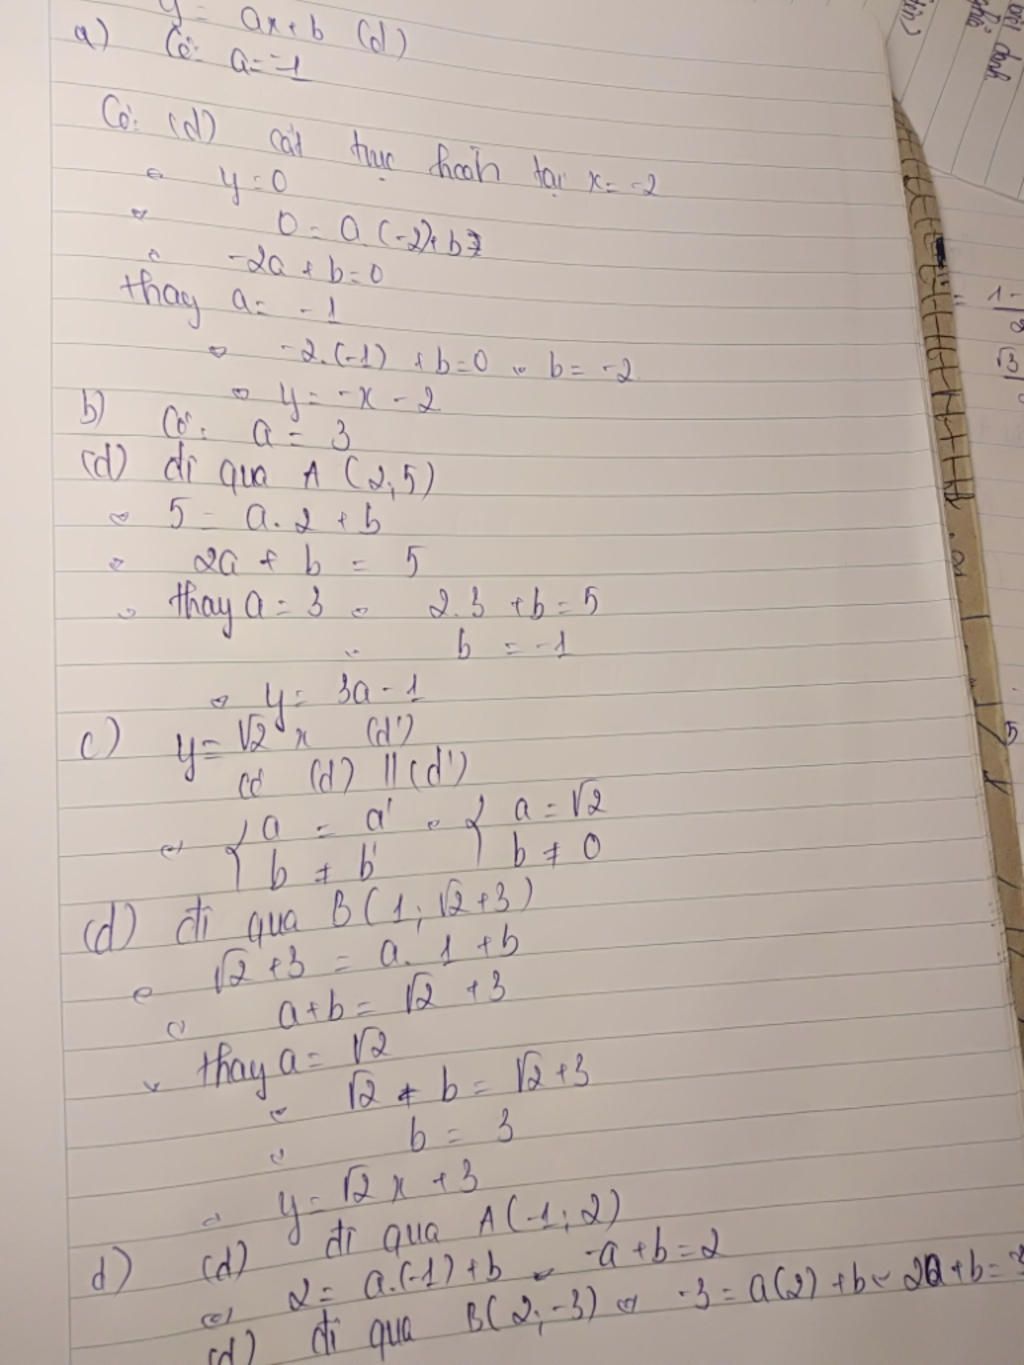 y = ax+b (d)
a) Có: a = -1
Có: (d) cắt trục hoành tại x = -2
⇔ y = 0
⇔ 0 = a.(-2)+b
⇔ -2a + b = 0
thay a = -1
⇔ -2.(-1) + b = 0 ⇔ b = -2
⇔ y = -x - 2
b) Có: a = 3
(d) đi qua A (2;5)
⇔ 5 = a.2 + b
⇔ 2a + b = 5
⇔ thay a = 3 ⇔ 2.3 + b = 5
⇔ b = -1
⇔ y = 3a - 1
c) y = √2 x (d')
có (d) // (d')
⇔ { a = a' ⇔ { a = √2
b ≠ b' b ≠ 0
(d) đi qua B(1; √2+3)
⇔ √2+3 = a.1+b
⇔ a+b = √2 +3
⇔ thay a = √2
⇔ √2 + b = √2+3
⇔ b = 3
⇔ y = √2 x + 3
d) (d) đi qua A(-1; 2)
⇔ 2 = a.(-1)+b ⇔ -a+b = 2
(d) đi qua B(2; -3) ⇔ -3 = a(2) + b ⇔ 2a+b =
định
1
√3
5